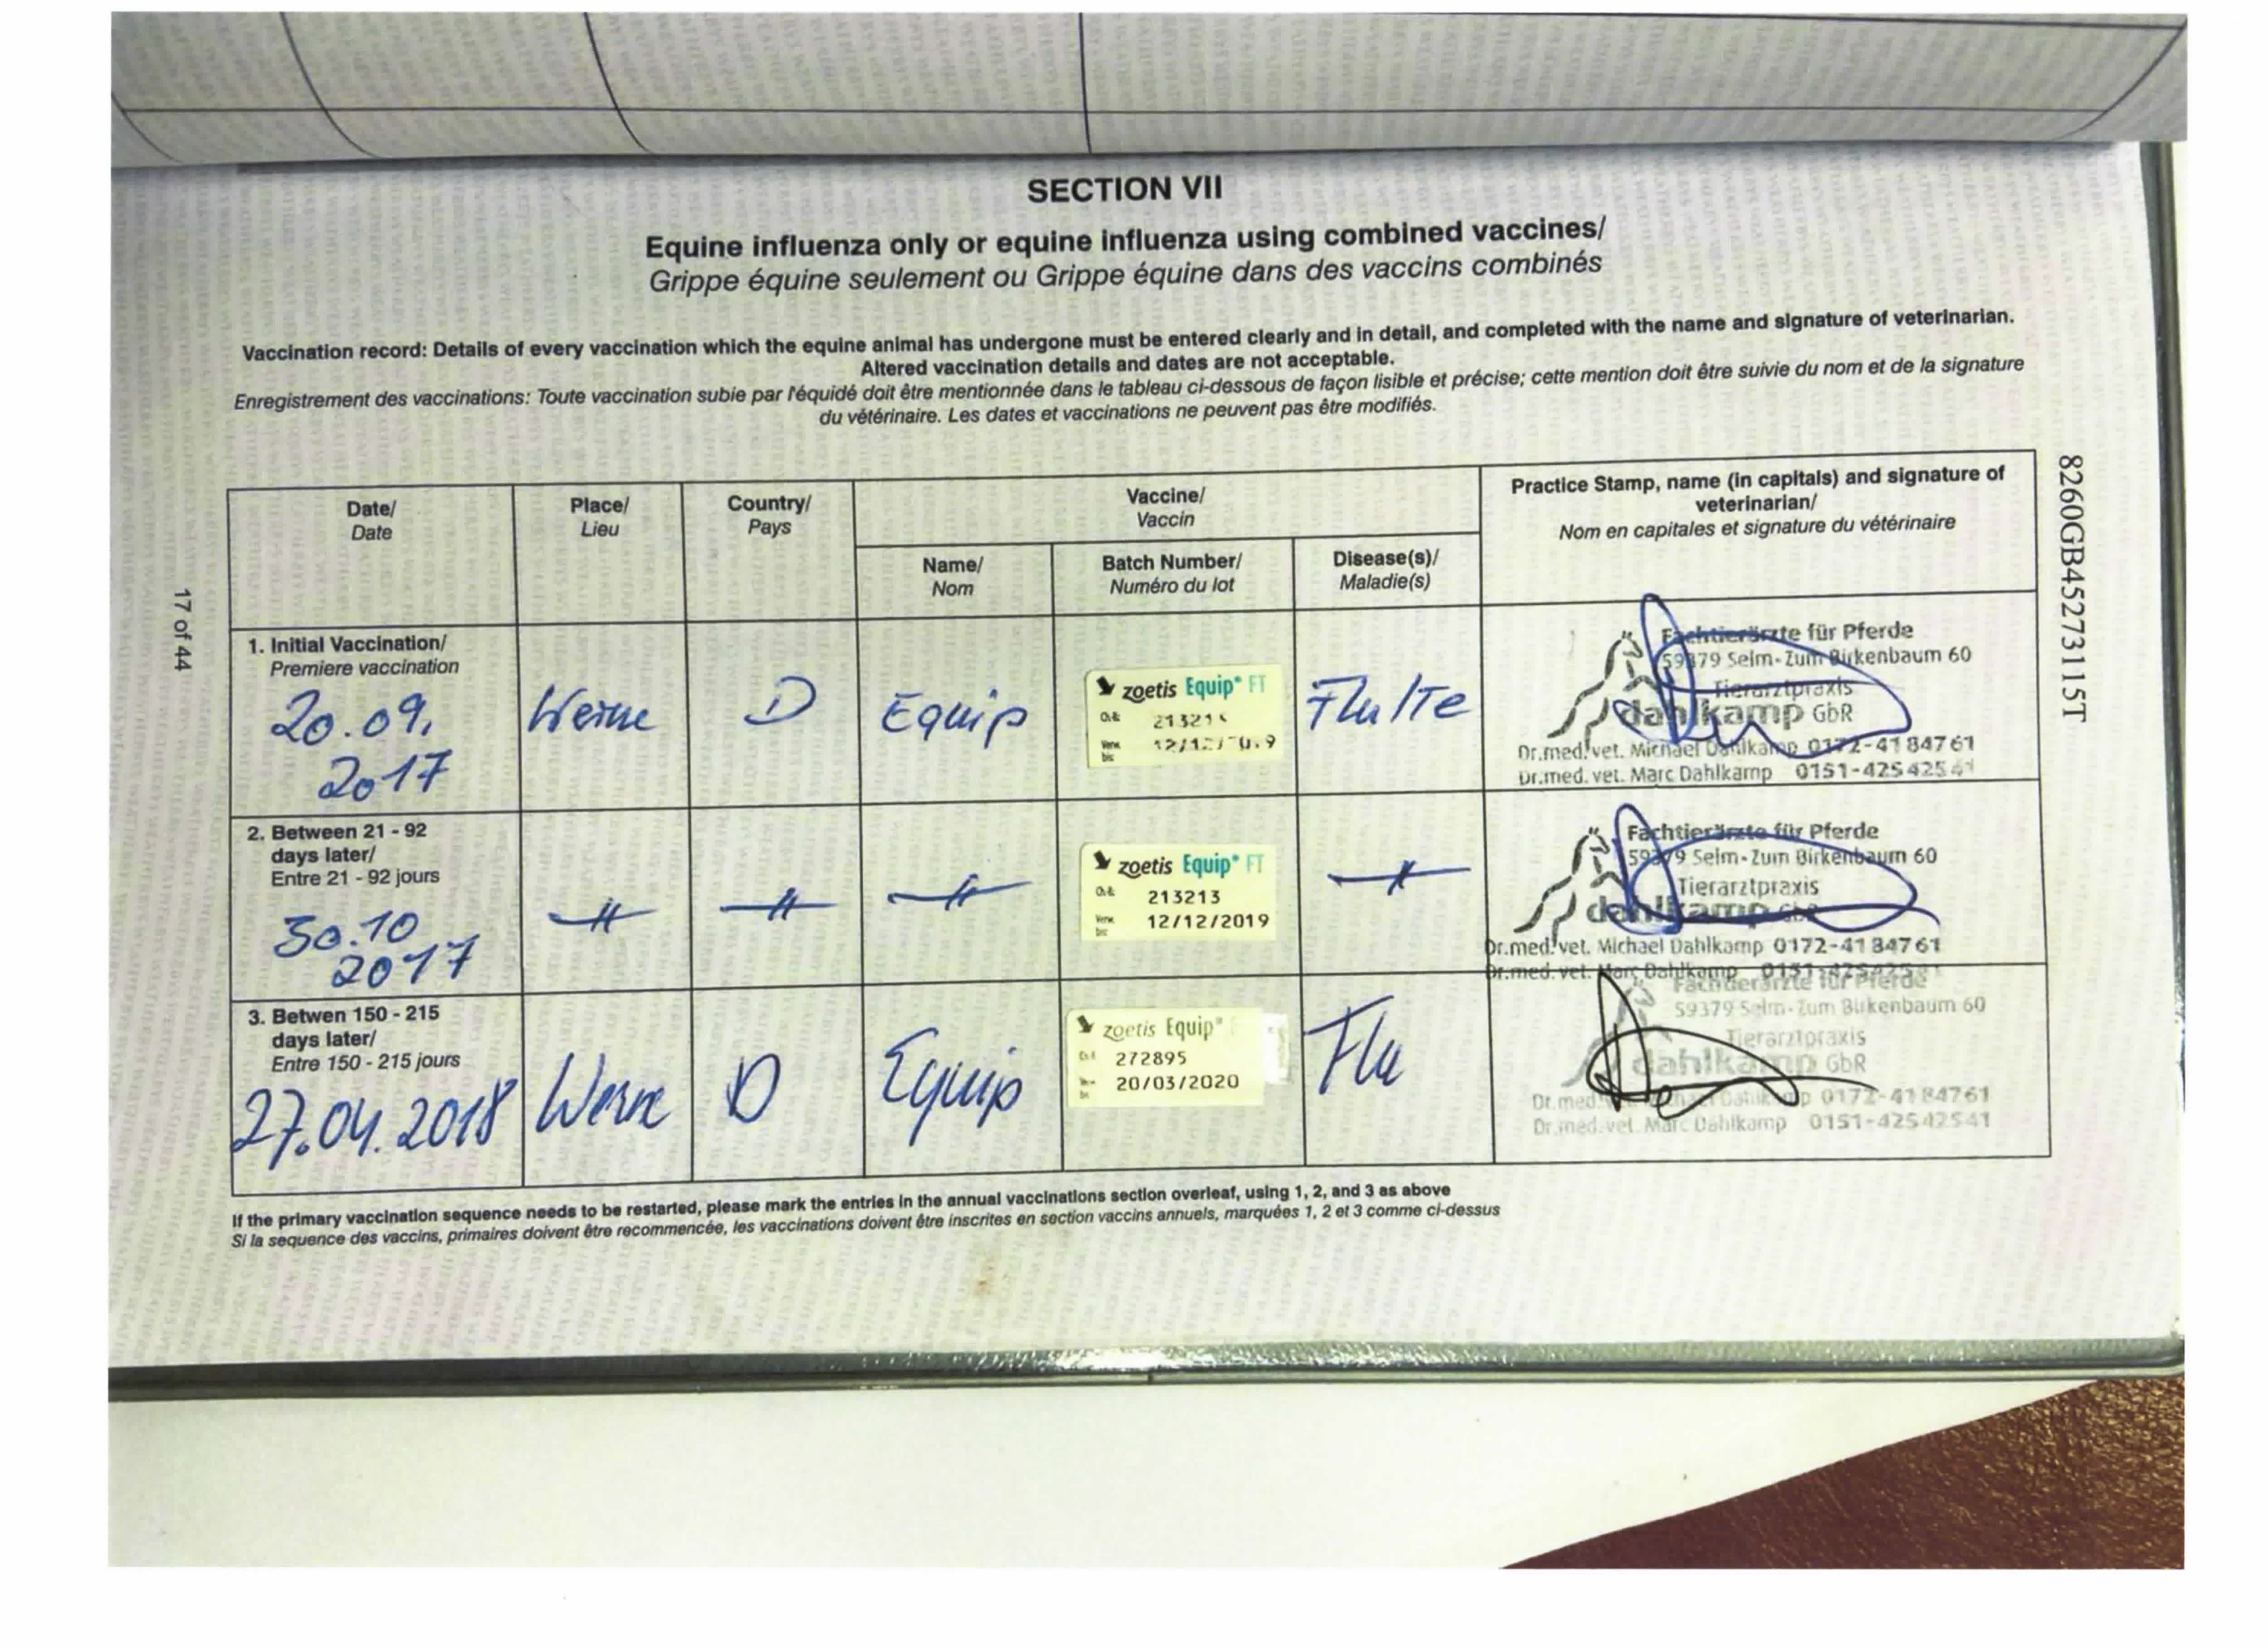 SECTION VII
Equine influenza only or equine influenza using combined vaccines/
Grippe équine seulement ou Grippe équine dans des vaccins combinés
Vaccination record: Details of every vaccination which the equine animal has undergone must be entered clearly and in detail, and completed with the name and signature of veterinarian.
Altered vaccination details and dates are not acceptable.
Enregistrement des vaccinations: Toute vaccination subie par l'équidé doit être mentionnée dans le tableau ci-dessous de façon lisible et précise; cette mention doit être suivie du nom et de la signature
du vétérinaire. Les dates et vaccinations ne peuvent pas être modifiés.
Date/
Date
Place/
Lieu
Country/
Pays
Vaccine/
Vaccin
Name/
Nom
Batch Number/
Numéro du lot
Disease(s)/
Maladie(s)
Practice Stamp, name (in capitals) and signature of
veterinarian/
Nom en capitales et signature du vétérinaire
1. Initial Vaccination/
Premiere vaccination
20.09.
2017
Werne
D
Equip
zoetis Equip® FT
Ch.-B.:
Verw.
bis:
Flu/Te
Fachtierärzte für Pferde
59379 Selm-Zum Birkenbaum 60
Tierarztpraxis
dahlkamp GbR
Dr.med.vet. Michael Dahlkamp 0172-4184761
Dr.med.vet. Marc Dahlkamp 0151-42542541
2. Between 21 - 92
days later/
Entre 21 - 92 jours
30.10
2017
zoetis Equip® FT
Ch.-B.:
213213
Verw.
bis:
12/12/2019
Fachtierärzte für Pferde
59379 Selm-Zum Birkenbaum 60
Tierarztpraxis
dahlkamp GbR
Dr.med.vet. Michael Dahlkamp 0172-4184761
Dr.med.vet. Marc Dahlkamp 0151-42542541
3. Betwen 150 - 215
days later/
Entre 150 - 215 jours
27.04.2018
Werne
D
Equip
zoetis Equip®
272895
20/03/2020
Flu
Fachtierärzte für Pferde
59379 Selm-Zum Birkenbaum 60
Tierarztpraxis
dahlkamp GbR
Dr.med.vet. Michael Dahlkamp 0172-4184761
Dr.med.vet. Marc Dahlkamp 0151-42542541
If the primary vaccination sequence needs to be restarted, please mark the entries in the annual vaccinations section overleaf, using 1, 2, and 3 as above
Si la sequence des vaccins, primaires doivent être recommencée, les vaccinations doivent être inscrites en section vaccins annuels, marquées 1, 2 et 3 comme ci-dessus
17 of 44
8260GB45273115T